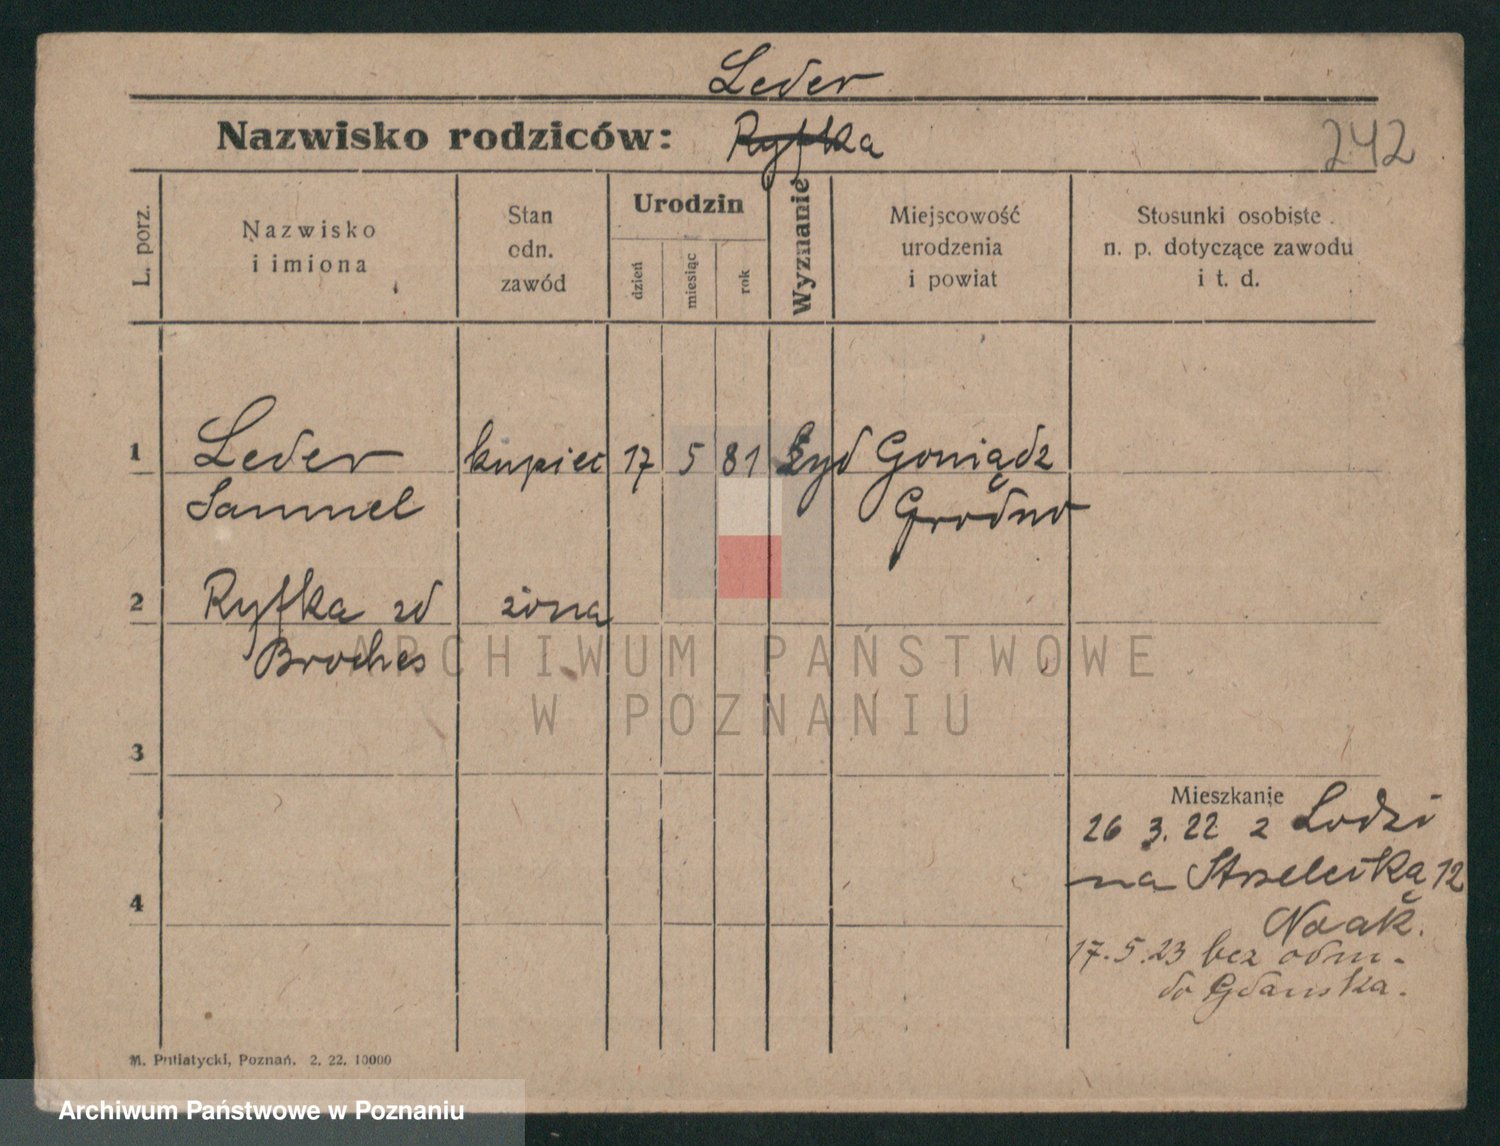 Leder
Nazwisko rodziców: Ryfka
242
L. porz.
Nazwisko
i imiona
Stan
odn.
zawód
Urodzin
dzień
miesiąc
rok
Wyznanie
Miejscowość
urodzenia
i powiat
Stosunki osobiste
n. p. dotyczące zawodu
i t. d.
1 Leder kupiec 17 5 81 żyd Goniądz
Samuel Grodno
2 Ryfka zd żona
Broches
3
4
Mieszkanie
26 3. 22 z Lodzi
na Strzelecką 12
Noak.
17. 5. 23 bez odm.
do Gdańska.
M. Putiatycki, Poznań. 2. 22. 10000
ARCHIWUM PAŃSTWOWE
W POZNANIU
Archiwum Państwowe w Poznaniu